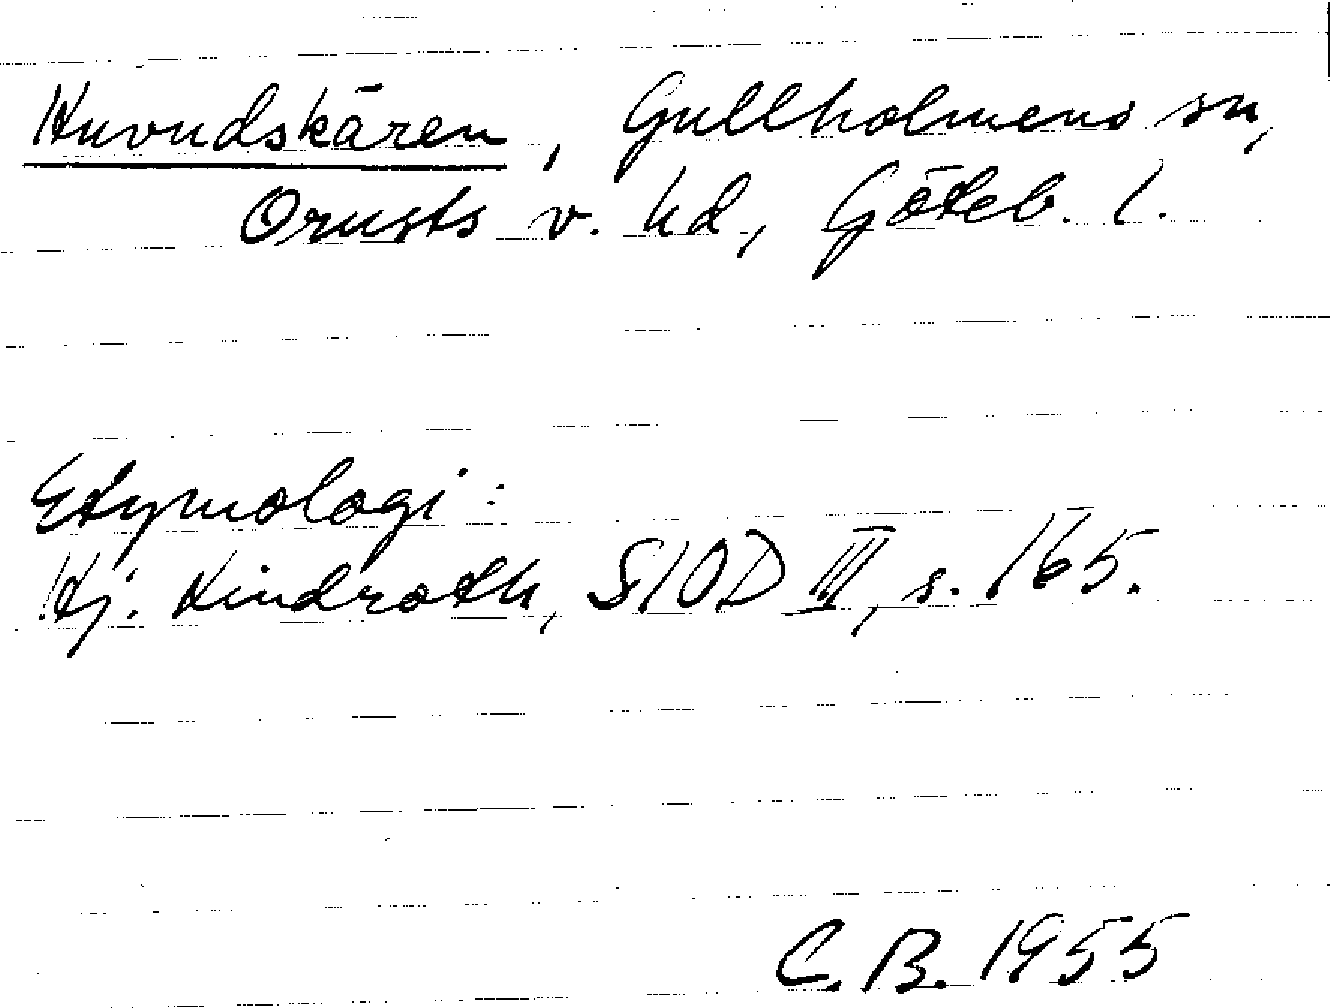 Huvudskären, Gullholmens sn,
Orusts v. hd, Göteb. l.
Etymologi:
Hj. Lindroth, SIOD III, s. 165.
C.B. 1955